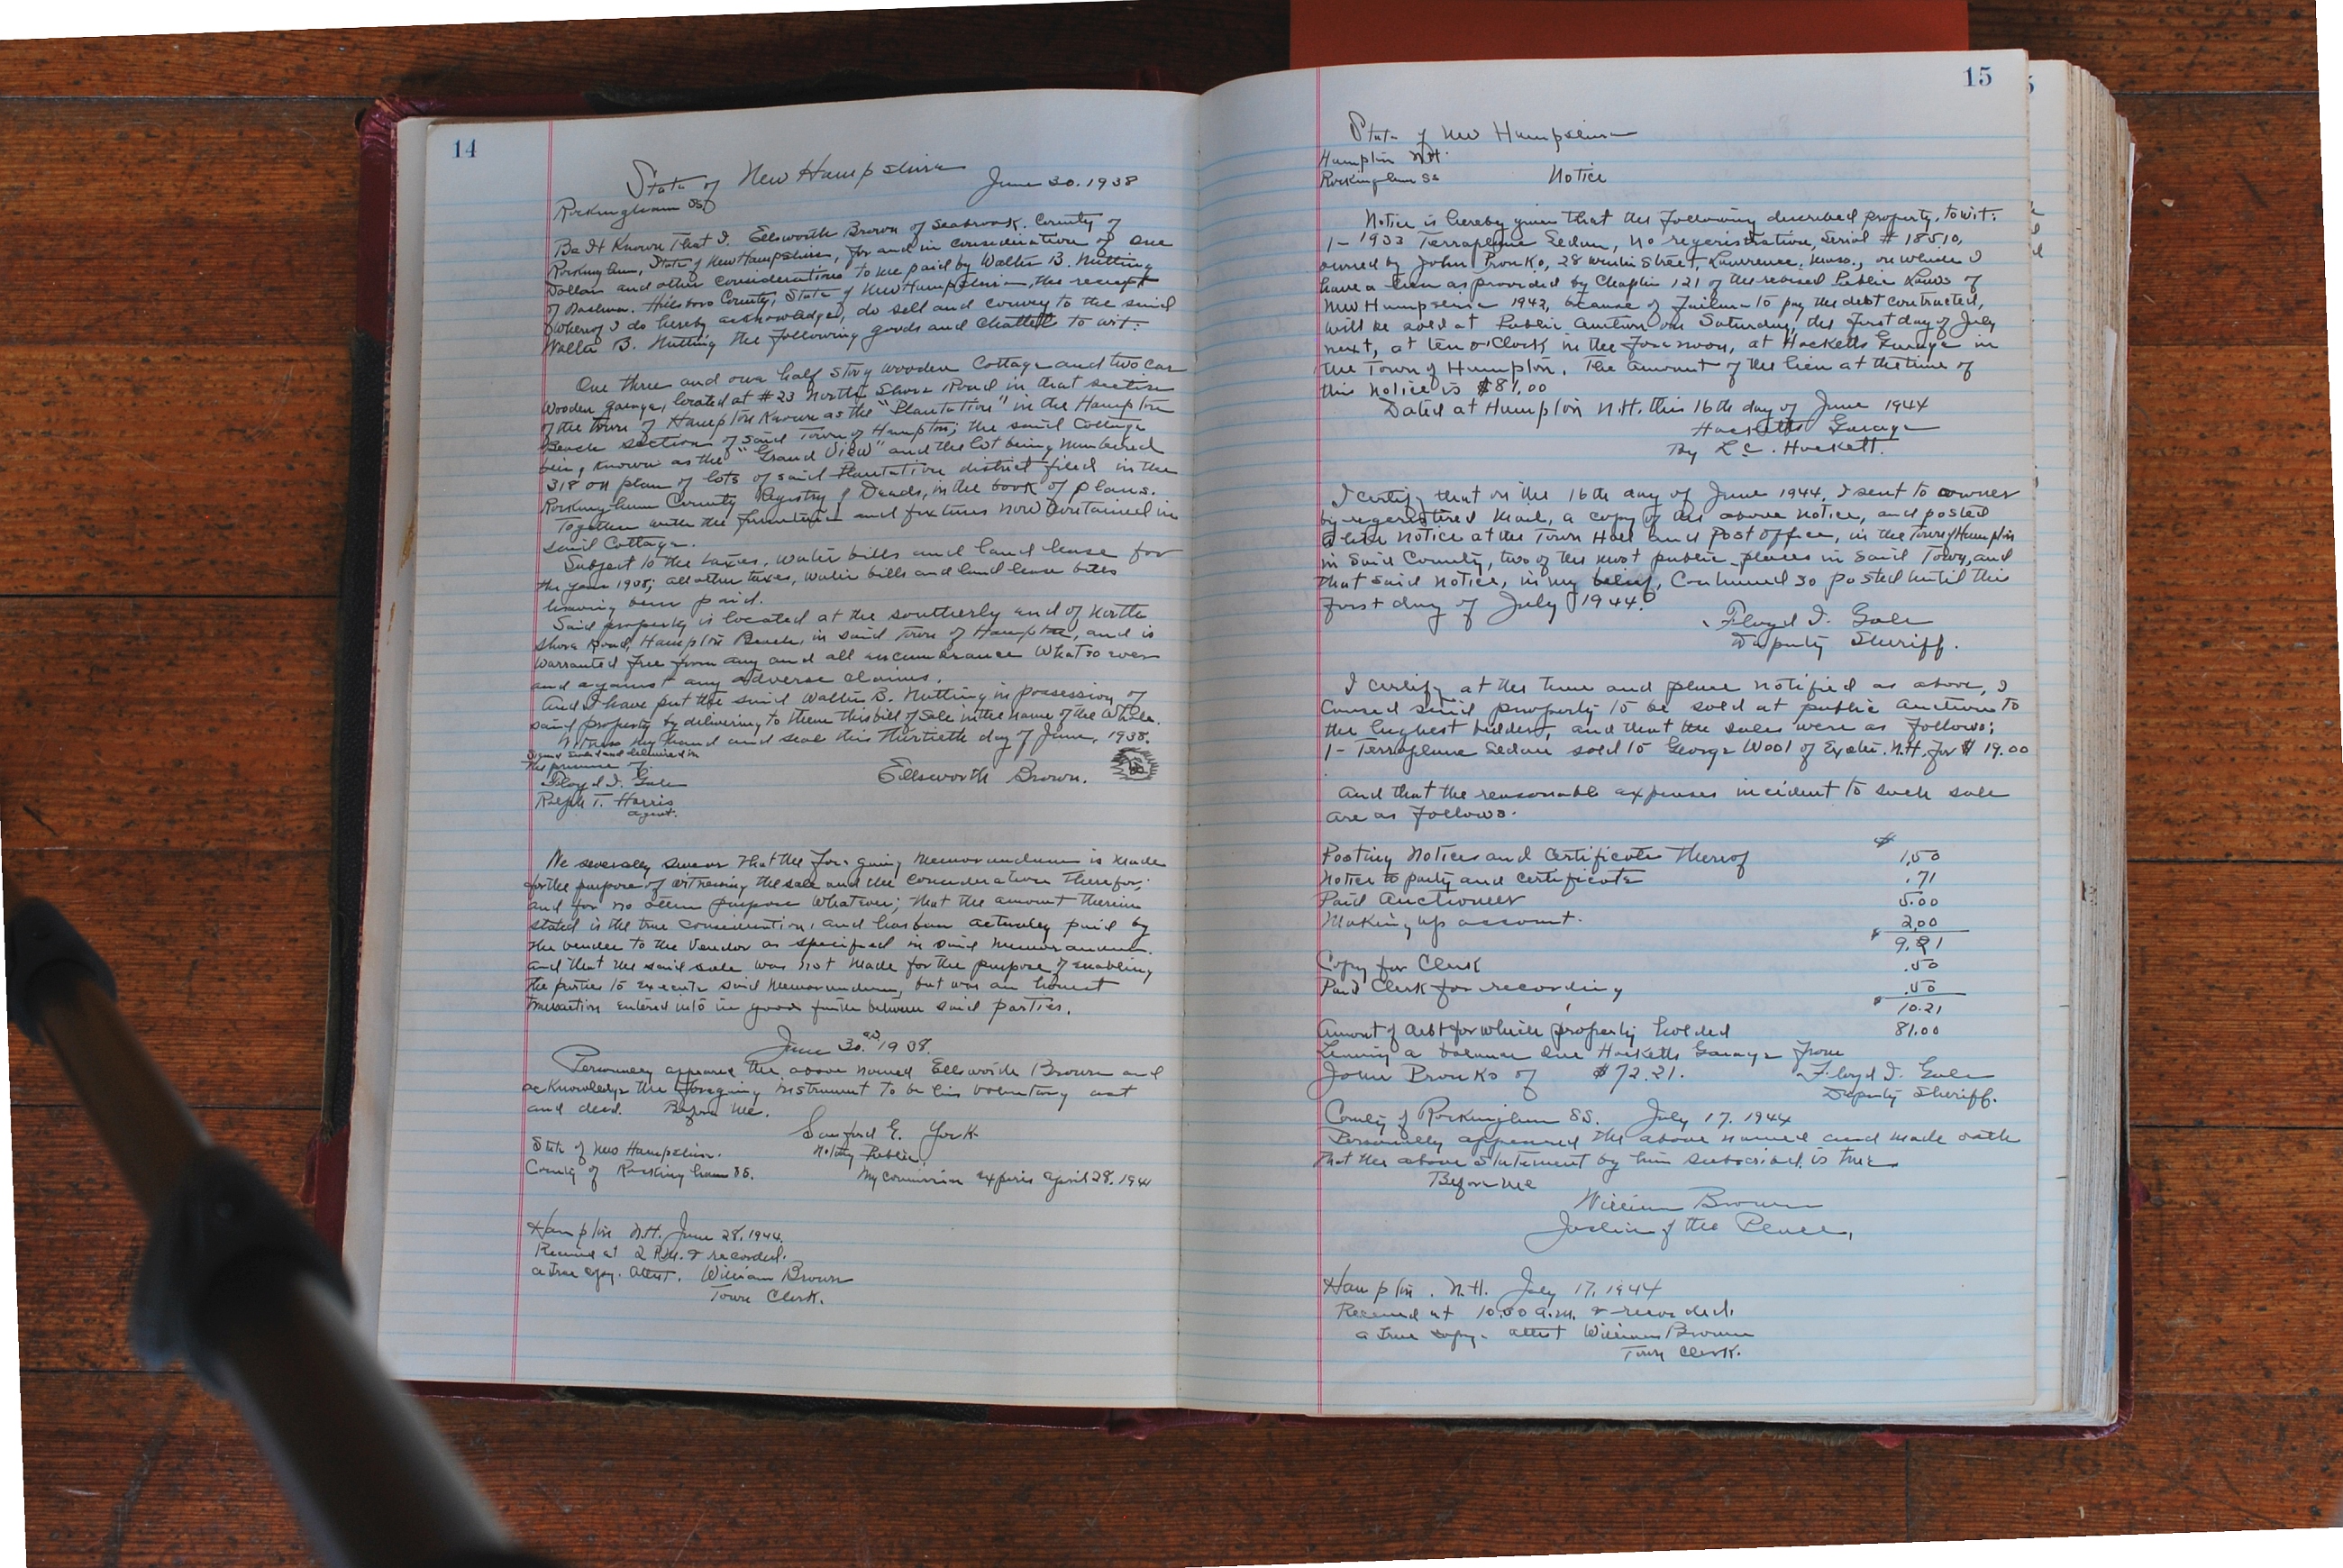 14
State of New Hampshire
June 30. 1938
Rockingham SS
Be It Known That I. Ellsworth Brown of Seabrook. County of
Rockingham, State of New Hampshire, for and in consideration of One
Dollar and other considerations to me paid by Walter B. Nutting
of Nashua. Hillsboro County, State of New Hampshire, the receipt
whereof I do hereby acknowledge, do sell and convey to the said
Walter B. Nutting the following goods and chattels to wit:
One three and one half story wooden Cottage and two car
wooden garage, located at #23 North Shore Road in that section
of the town of Hampton Known as the "Plantation" in the Hampton
Beach section of said Town of Hampton; the said Cottage
being known as the "Grand View" and the lot being numbered
318 on plan of lots of said Plantation district filed in the
Rockingham County Registry of Deeds, in the book of plans.
Together with the furniture and fixtures now contained in
said Cottage.
Subject to the taxes, water bills and land lease for
the year 1938; all other taxes, water bills and land lease bills
having been paid.
Said property is located at the southerly end of North
Shore Road, Hampton Beach, in said Town of Hampton, and is
warranted free from any and all encumbrance what so ever
and against any adverse claims.
And I have put the said Walter B. Nutting in possession of
said property by delivering to them this bill of sale in the name of the whole.
Witness my hand and seal this thirtieth day of June, 1938.
Signed Sealed and delivered in
the presence of.
Floyd I. Gale
Ellsworth Brown.
Ralph T. Harris
agent.
We severally swear that the foregoing memorandum is made
for the purpose of witnessing the sale and the consideration therefor;
and for no other purpose whatever; that the amount therein
stated is the true consideration, and has been actually paid by
the vendee to the Vendor as specified in said memorandum.
and that the said sale was not made for the purpose of enabling
the parties to execute said memorandum, but was an honest
transaction entered into in good faith between said parties.
June 30. 1938.
Personally appeared the above named Ellsworth Brown and
acknowledge the foregoing instrument to be his voluntary act
and deed. Before me.
Sanford E. York
State of New Hampshire.
Notary Public
County of Rockingham SS.
My commission expires April 28. 1941
Hampton N.H. June 28. 1944.
Received at 2 P.M. & recorded.
a true copy. Attest. William Brown
Town Clerk.
15
State of New Hampshire
Hampton N.H.
Rockingham SS
Notice
Notice is hereby given that the following described property, to wit:
1- 1933 Terraplane Sedan, no regeristration, Serial # 18510,
owned by John Bronko, 28 Street, Lawrence, Mass., on which I
have a lien as provided by Chapter 121 of the revised Public Laws of
New Hampshire 1942, because of failure to pay the debt contracted,
will be sold at Public Auction on Saturday, the first day of July
next, at ten o'clock in the forenoon, at Hacketts Garage in
the Town of Hampton. The amount of the lien at the time of
this notice is $81.00
Dated at Hampton N.H. this 16th day of June 1944
Hacketts Garage
By L.C. Hackett.
I certify that on the 16th day of June 1944, I sent to owner
by regeristered mail, a copy of the above notice, and posted
a like notice at the Town Hall and Post Office, in the Town of Hampton
in said County, two of the most public places in said Town, and
that said notice, in my belief, continued so posted until the
first day of July 1944.
Floyd I. Gale
Deputy Sheriff.
I certify at the time and place notified as above, I
caused said property to be sold at public auction to
the highest bidder, and that the sales were as follows;
1- Terraplane Sedan sold to George Wool of Exeter. N.H. for $ 19.00
And that the reasonable expenses incident to such sale
are as follows.
$
Posting Notices and Certificate thereof 1.50
Notice to party and certificate .71
Paid Auctioneer 5.00
Making up account. 2.00
$ 9.21
Copy for Clerk .50
Paid Clerk for recording .50
$ 10.21
Amount of debt for which property holded 81.00
Leaving a balance due Hacketts Garage from
John Bronko of $72.21.
Floyd I. Gale
Deputy Sheriff.
County of Rockingham SS. July 17. 1944
Personally appeared the above named and made oath
that the above statement by him subscribed is true
Before me
William Brown
Justice of the Peace,
Hampton. N.H. July 17, 1944
Received at 10.00 a.m. & recorded.
a true copy- attest William Brown
Town Clerk.